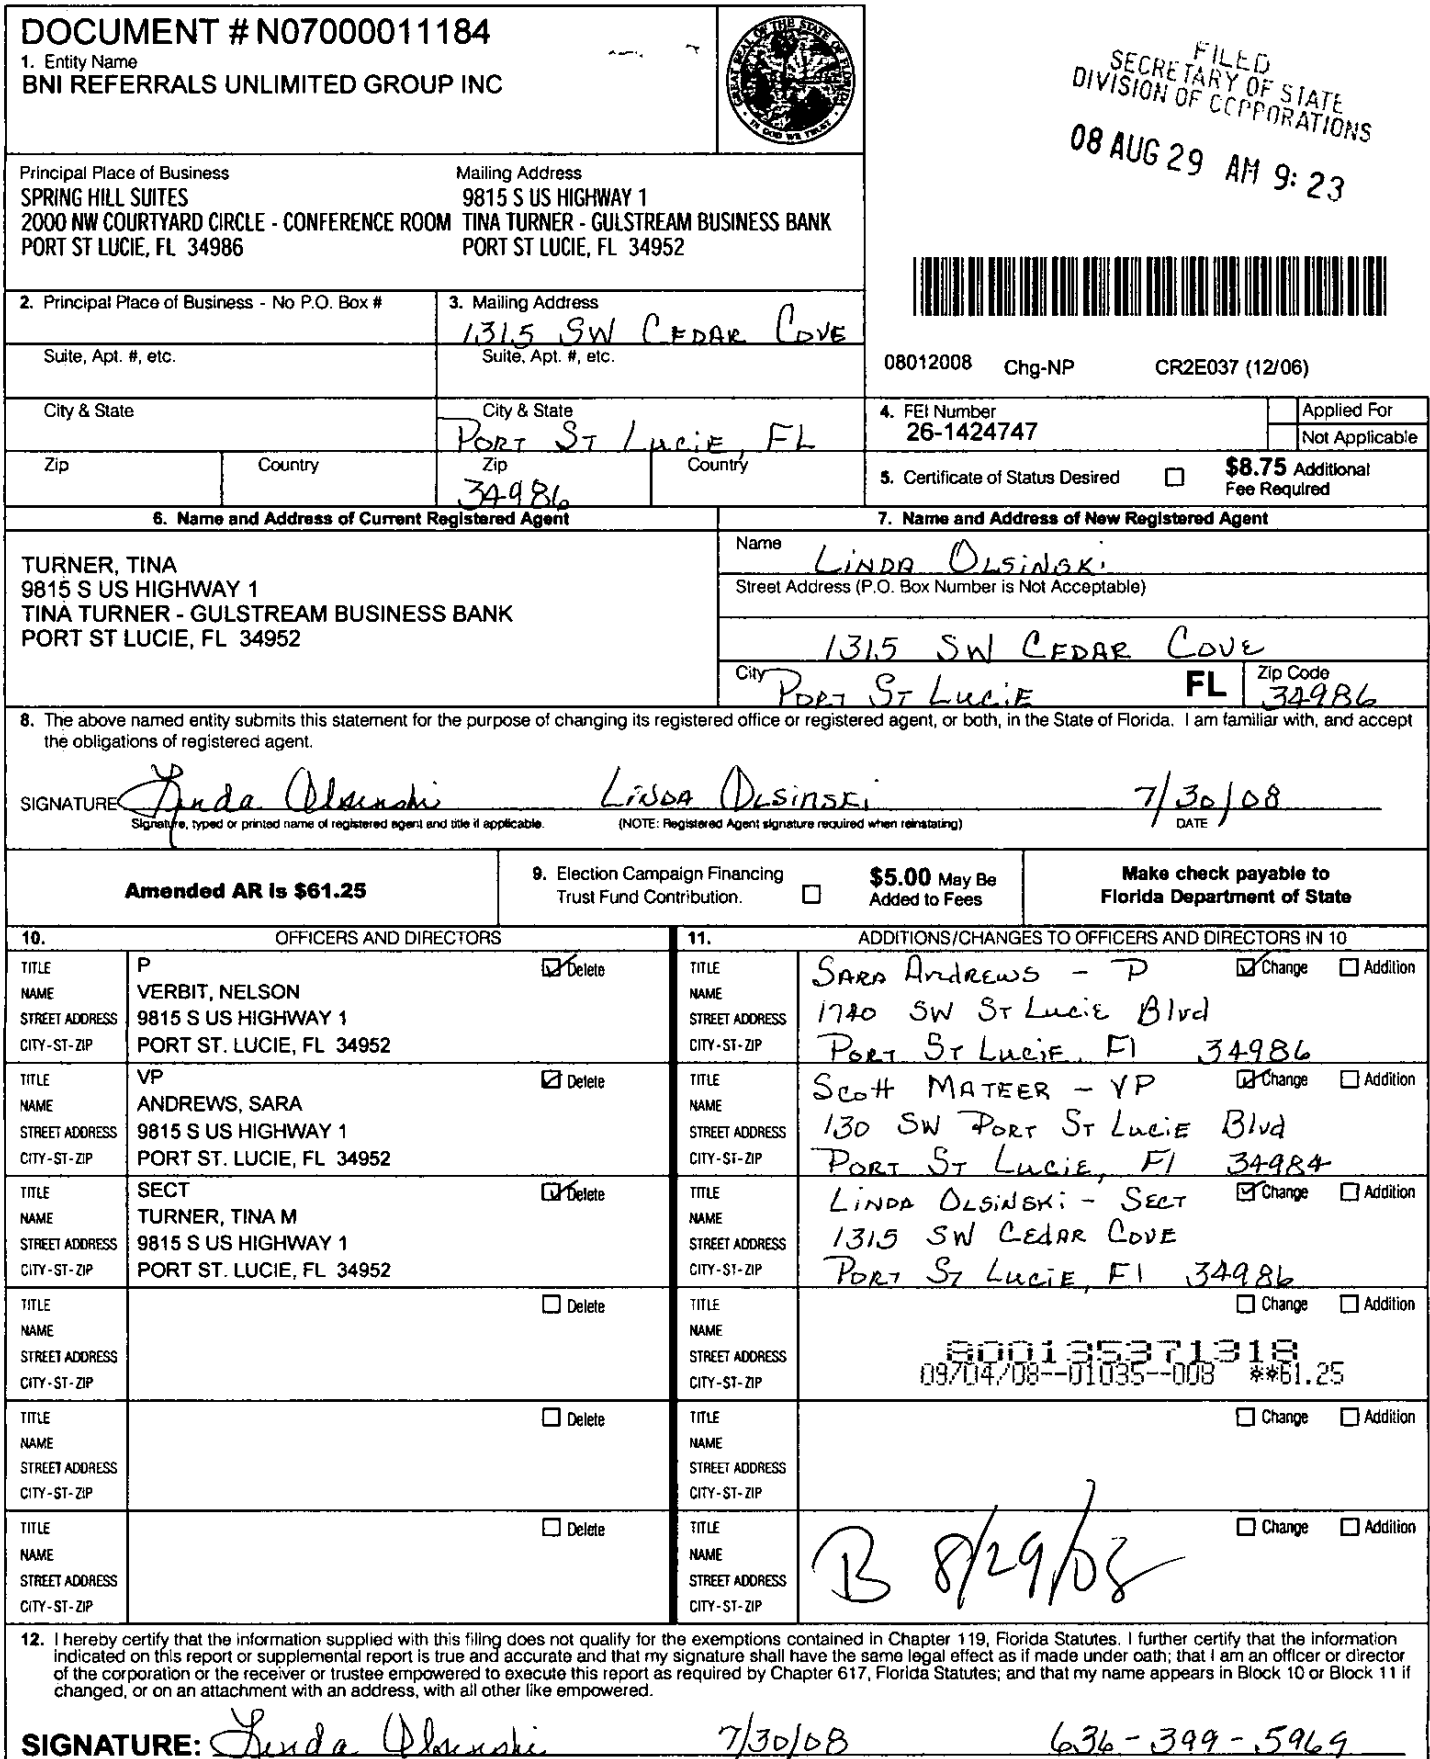 DOCUMENT # N07000011184
1. Entity Name
BNI REFERRALS UNLIMITED GROUP INC
GREAT SEAL OF THE STATE OF FLORIDA
IN GOD WE TRUST
FILED
SECRETARY OF STATE
DIVISION OF CORPORATIONS
08 AUG 29 AM 9: 23
Principal Place of Business
SPRING HILL SUITES
2000 NW COURTYARD CIRCLE - CONFERENCE ROOM
PORT ST LUCIE, FL 34986
Mailing Address
9815 S US HIGHWAY 1
TINA TURNER - GULSTREAM BUSINESS BANK
PORT ST LUCIE, FL 34952
2. Principal Place of Business - No P.O. Box #
3. Mailing Address
1315 SW CEDAR COVE
Suite, Apt. #, etc.
Suite, Apt. #, etc.
08012008 Chg-NP CR2E037 (12/06)
City & State
City & State
PORT ST LUCIE, FL
Zip
Country
Zip
34986
Country
4. FEI Number
26-1424747
Applied For
Not Applicable
5. Certificate of Status Desired
$8.75 Additional
Fee Required
6. Name and Address of Current Registered Agent
TURNER, TINA
9815 S US HIGHWAY 1
TINA TURNER - GULSTREAM BUSINESS BANK
PORT ST LUCIE, FL 34952
7. Name and Address of New Registered Agent
Name
LINDA OLSINSKI
Street Address (P.O. Box Number is Not Acceptable)
1315 SW CEDAR COVE
City PORT ST LUCIE FL
Zip Code
34986
8. The above named entity submits this statement for the purpose of changing its registered office or registered agent, or both, in the State of Florida. I am familiar with, and accept
the obligations of registered agent.
SIGNATURE Linda Olsinski LINDA OLSINSKI 7/30/08
Signature, typed or printed name of registered agent and title if applicable. (NOTE: Registered Agent signature required when reinstating) DATE
Amended AR is $61.25
9. Election Campaign Financing
Trust Fund Contribution.
$5.00 May Be
Added to Fees
Make check payable to
Florida Department of State
10. OFFICERS AND DIRECTORS
TITLE P Delete
NAME VERBIT, NELSON
STREET ADDRESS 9815 S US HIGHWAY 1
CITY-ST-ZIP PORT ST. LUCIE, FL 34952
TITLE VP Delete
NAME ANDREWS, SARA
STREET ADDRESS 9815 S US HIGHWAY 1
CITY-ST-ZIP PORT ST. LUCIE, FL 34952
TITLE SECT Delete
NAME TURNER, TINA M
STREET ADDRESS 9815 S US HIGHWAY 1
CITY-ST-ZIP PORT ST. LUCIE, FL 34952
TITLE Delete
NAME
STREET ADDRESS
CITY-ST-ZIP
TITLE Delete
NAME
STREET ADDRESS
CITY-ST-ZIP
TITLE Delete
NAME
STREET ADDRESS
CITY-ST-ZIP
11. ADDITIONS/CHANGES TO OFFICERS AND DIRECTORS IN 10
TITLE SARA ANDREWS - P Change Addition
NAME
STREET ADDRESS 1740 SW ST LUCIE Blvd
CITY-ST-ZIP PORT ST LUCIE, Fl 34986
TITLE Scott MATEER - VP Change Addition
NAME
STREET ADDRESS 130 SW PORT ST LUCIE Blvd
CITY-ST-ZIP PORT ST LUCIE, Fl 34984
TITLE LINDA OLSINSKI - SECT Change Addition
NAME
STREET ADDRESS 1315 SW CEDAR COVE
CITY-ST-ZIP PORT ST LUCIE, Fl 34986
TITLE Change Addition
NAME
STREET ADDRESS 800135371318
CITY-ST-ZIP 09/04/08--01035--008 **61.25
TITLE Change Addition
NAME
STREET ADDRESS
CITY-ST-ZIP
TITLE Change Addition
NAME
STREET ADDRESS B 8/29/08
CITY-ST-ZIP
12. I hereby certify that the information supplied with this filing does not qualify for the exemptions contained in Chapter 119, Florida Statutes. I further certify that the information
indicated on this report or supplemental report is true and accurate and that my signature shall have the same legal effect as if made under oath; that I am an officer or director
of the corporation or the receiver or trustee empowered to execute this report as required by Chapter 617, Florida Statutes; and that my name appears in Block 10 or Block 11 if
changed, or on an attachment with an address, with all other like empowered.
SIGNATURE: Linda Olsinski 7/30/08 636-399-5969